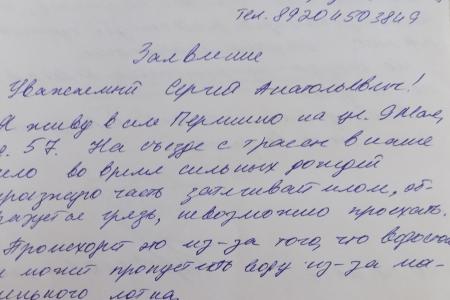 тел. 89204503849
Заявление
Уважаемый Сергей Анатольевич!
Я живу в селе Першино на ул. 9 Мая,
д. 57. На съезде с трассы в наше
село во время сильных дождей
проезжую часть затягивает илом, об-
разуется грязь, невозможно проехать.
Происходит это из-за того, что водосток
не может пропустить воду из-за ма-
ленького лотка.